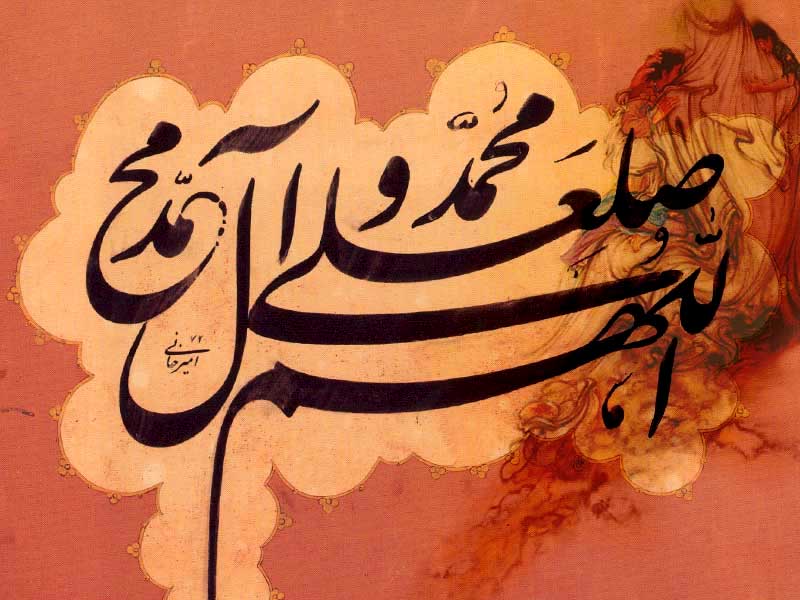 اللّهم
صل علی محمّد و آل محمّد
امیرخانی ۷۲